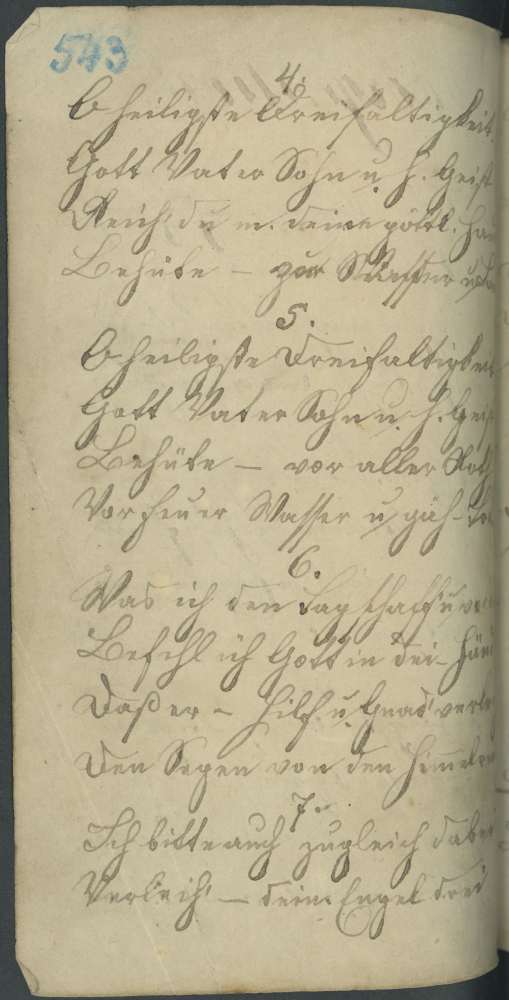 543
4.
O heiligste Dreifaltigkeit
Gott Vater Sohn u. h. Geist
Reich' du m. deine göttl. Ha
Behüte – zu Wasser u.
5.
O heiligste Dreifaltigkeit
Gott Vater Sohn u. h. Geis
Behüte – vor aller Noth
Vor Feuer Wasser u. gäh-
6.
Was ich den Tag schaff' u.
Befehl ich Gott in dei- Hän
Daß er – Hilf u. Gnad' verl
Den Segen von den Himmel
7.
Ich bitte auch zugleich dabei
Verleih' – deine Engel drei